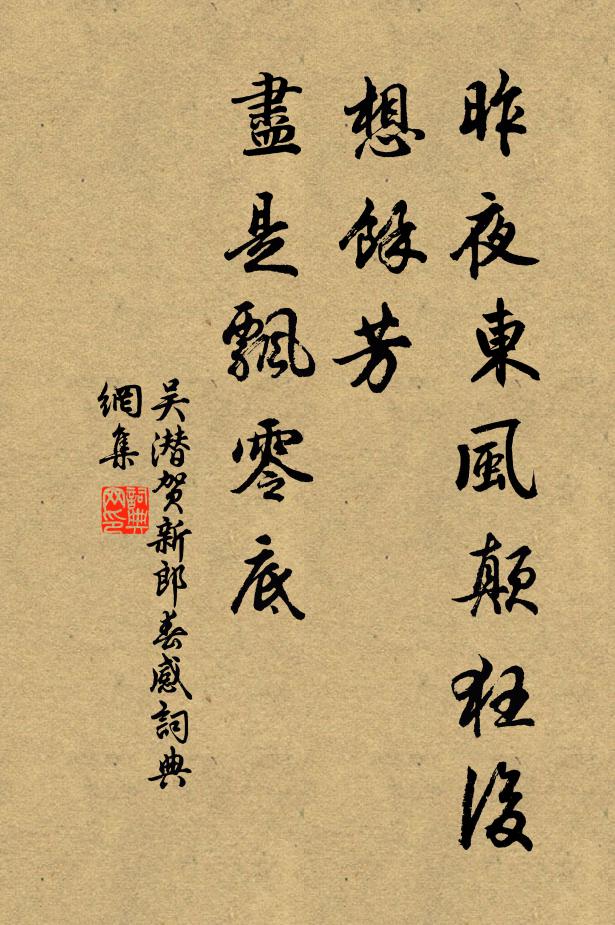 昨夜東風顛狂後
想餘芳
盡是飄零底
吴潜贺新郎春感詞典
網集
詞典
网印